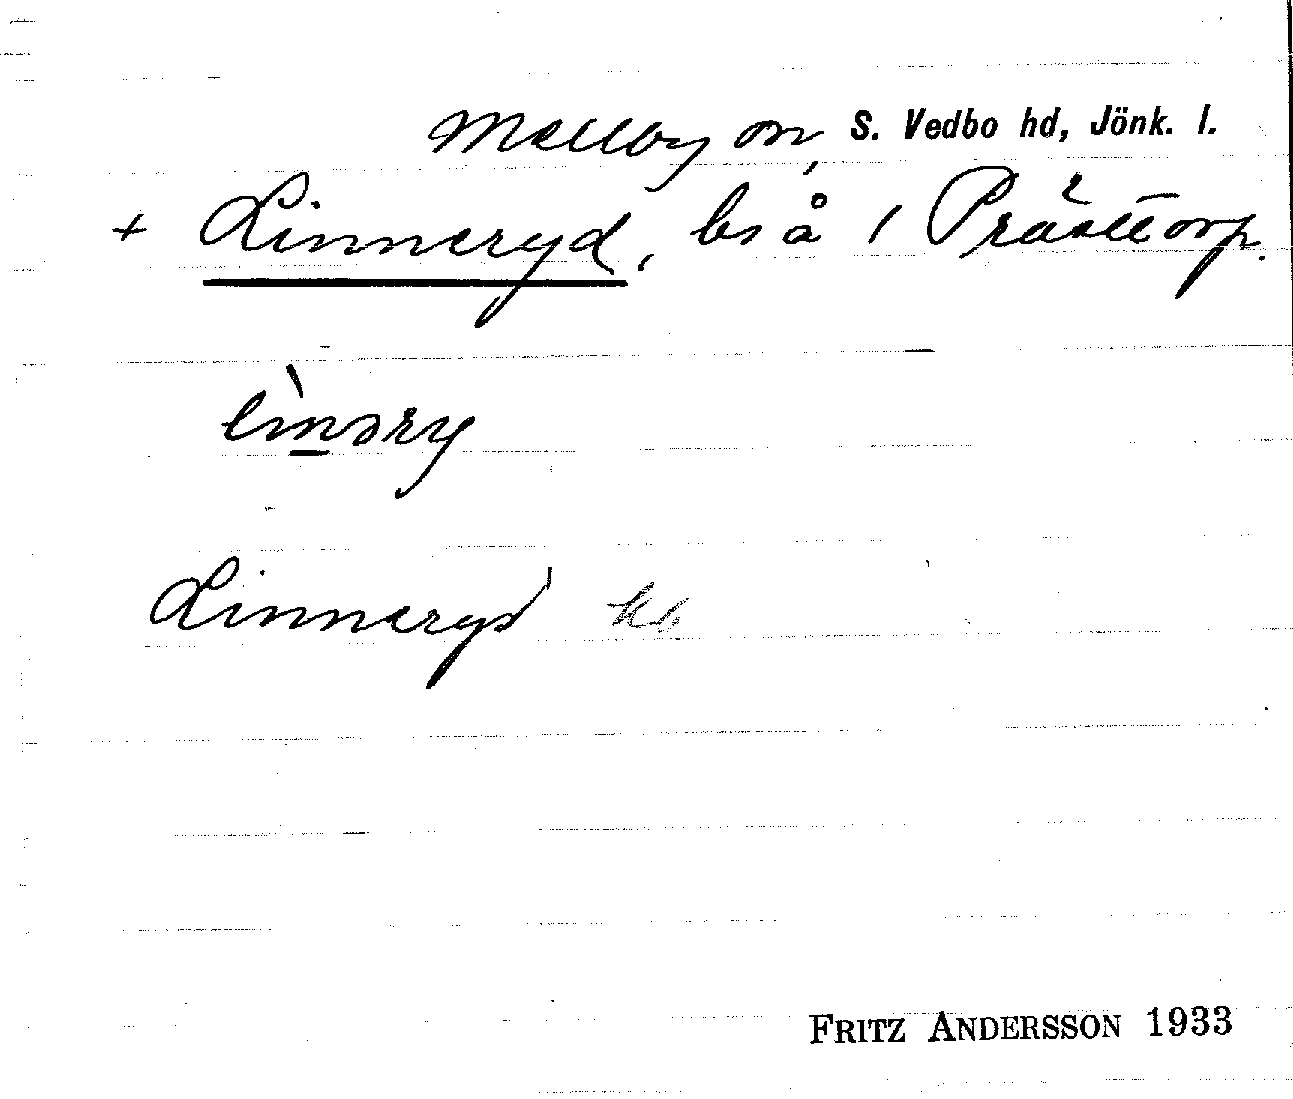 Mellby sn, S. Vedbo hd, Jönk. l.
+ Linneryd, bs å / Prästtorp.
lìnəry
Linneryd
FRITZ ANDERSSON 1933